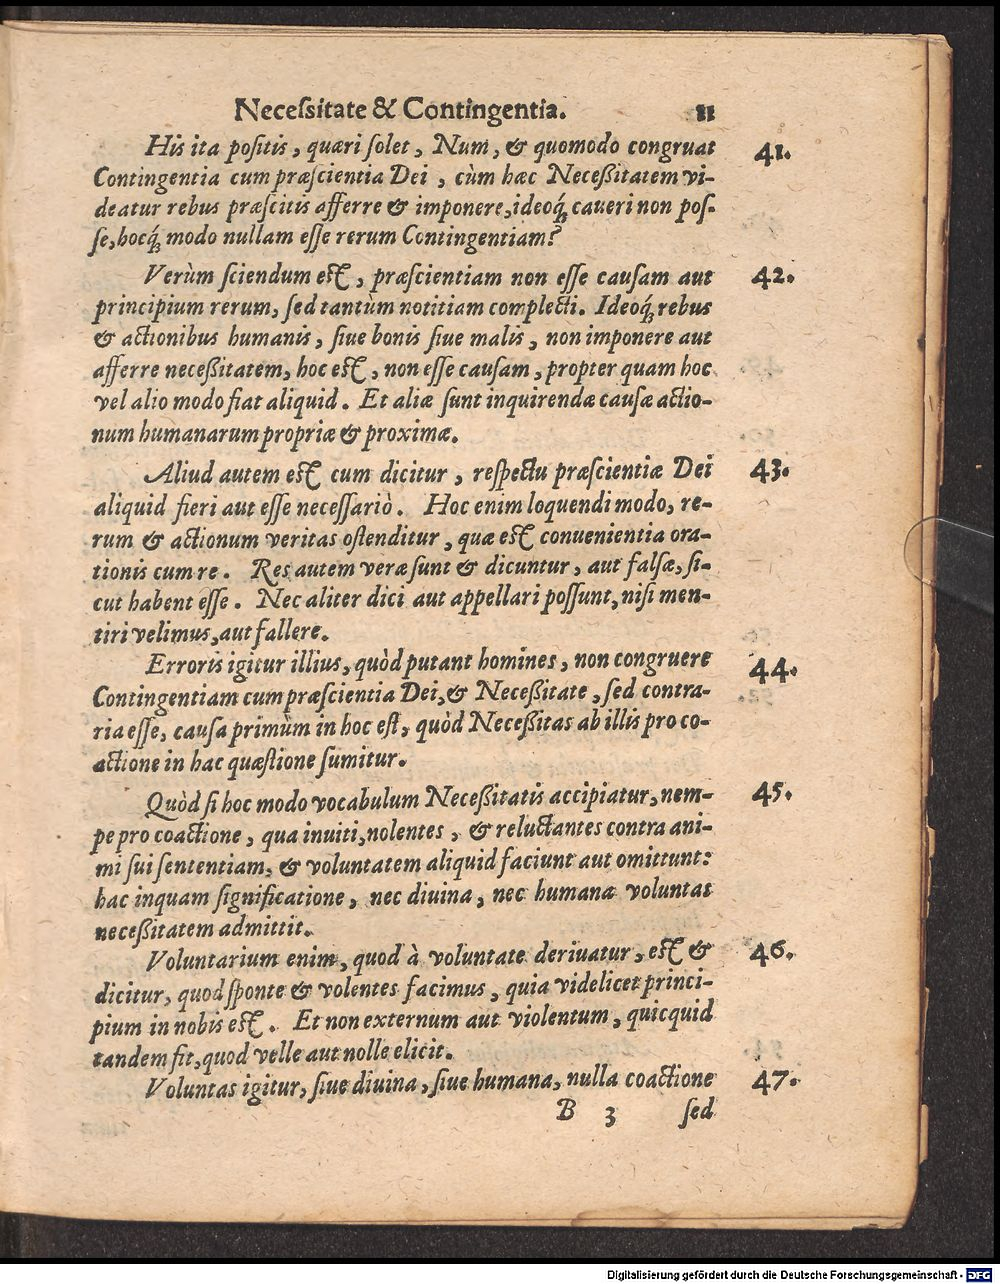 Neceſsitate & Contingentia. 11
His ita poſitis, quæri ſolet, Num, & quomodo congruat 41.
Contingentia cum præſcientia Dei, cùm hæc Neceßitatem vi-
deatur rebus præſcitis afferre & imponere, ideoq́; caueri non poſ-
ſe, hocq́; modo nullam eſſe rerum Contingentiam?
Verùm ſciendum eſt, præſcientiam non eſſe cauſam aut 42.
principium rerum, ſed tantùm notitiam complecti. Ideoq́; rebus
& actionibus humanis, ſiue bonis ſiue malis, non imponere aut
afferre neceßitatem, hoc eſt, non eſſe cauſam, propter quam hoc
vel alio modo fiat aliquid. Et aliæ ſunt inquirendæ cauſæ actio-
num humanarum propriæ & proximæ.
Aliud autem eſt cum dicitur, reſpectu præſcientiæ Dei 43.
aliquid fieri aut eſſe neceſſariò. Hoc enim loquendi modo, re-
rum & actionum veritas oſtenditur, quæ eſt conuenientia ora-
tionis cum re. Res autem veræ ſunt & dicuntur, aut falſæ, ſi-
cut habent eſſe. Nec aliter dici aut appellari poſſunt, niſi men-
tiri velimus, aut fallere.
Erroris igitur illius, quòd putant homines, non congruere 44.
Contingentiam cum præſcientia Dei, & Neceßitate, ſed contra-
ria eſſe, cauſa primùm in hoc eſt, quòd Neceßitas ab illis pro co-
actione in hac quæſtione ſumitur.
Quòd ſi hoc modo vocabulum Neceßitatis accipiatur, nem- 45.
pe pro coactione, qua inuiti, nolentes, & reluctantes contra ani-
mi ſui ſententiam, & voluntatem aliquid faciunt aut omittunt:
hac inquam ſignificatione, nec diuina, nec humana voluntas
neceßitatem admittit.
Voluntarium enim, quod à voluntate deriuatur, eſt & 46.
dicitur, quod ſponte & volentes facimus, quia videlicet princi-
pium in nobis eſt. Et non externum aut violentum, quicquid
tandem fit, quod velle aut nolle elicit.
Voluntas igitur, ſiue diuina, ſiue humana, nulla coactione 47.
B 3 ſed
Digitalisierung gefördert durch die Deutsche Forschungsgemeinschaft - DFG